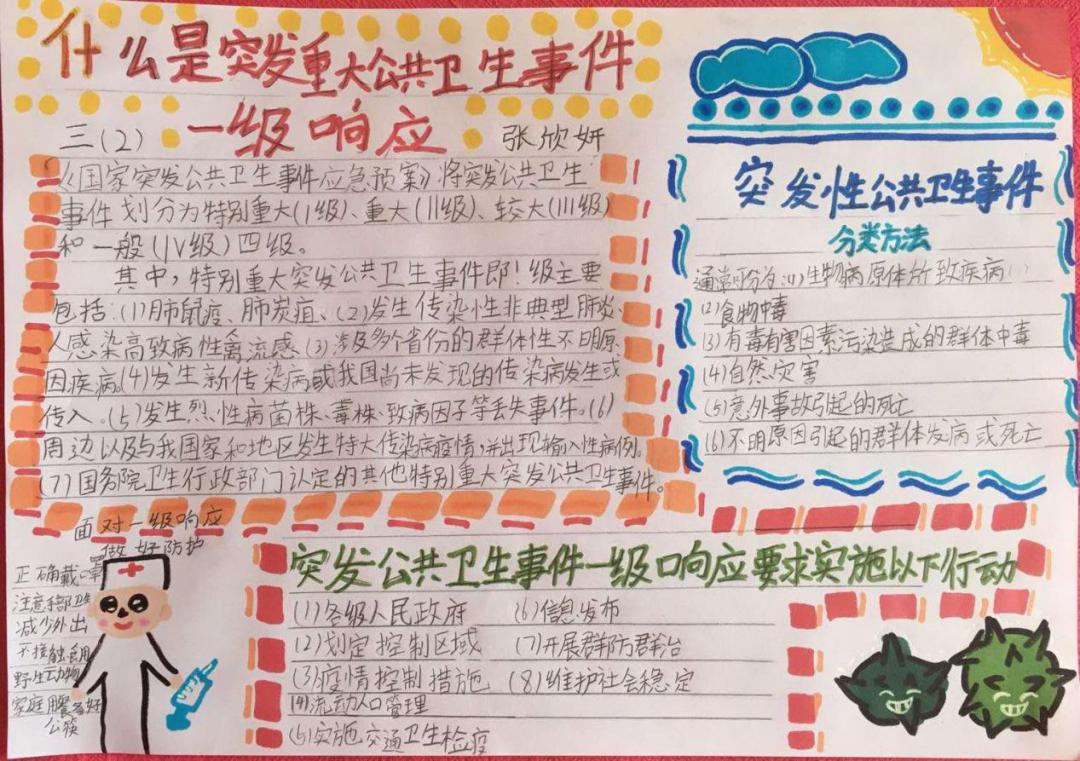 什么是突发重大公共卫生事件
一级响应
三(2)
张欣妍
《国家突发公共卫生事件应急预案》将突发公共卫生
事件划分为特别重大(I级)、重大(II级)、较大(III级)
和一般(IV级)四级。
其中,特别重大突发公共卫生事件即I级主要
包括:(1)肺鼠疫、肺炭疽、(2)发生传染性非典型肺炎、
人感染高致病性禽流感、(3)涉及多个省份的群体性不明原
因疾病。(4)发生新传染病或我国尚未发现的传染病发生或
传入。(5)发生烈性病菌株、毒株、致病因子等丢失事件。(6)
周边以及与我国家和地区发生特大传染病疫情,并出现输入性病例。
(7)国务院卫生行政部门认定的其他特别重大突发公共卫生事件。
突发性公共卫生事件
分类方法
通常分为:(1)生物病原体所致疾病
(2)食物中毒
(3)有毒有害因素污染造成的群体中毒
(4)自然灾害
(5)意外事故引起的死亡
(6)不明原因引起的群体发病或死亡
面对一级响应
做好防护
正确戴口罩
注意手部卫生
减少外出
不接触食用
野生动物
家庭用餐备好
公筷
突发公共卫生事件一级响应要求实施以下行动
(1)各级人民政府
(2)划定控制区域
(3)疫情控制措施
(4)流动人口管理
(5)实施交通卫生检疫
(6)信息发布
(7)开展群防群治
(8)维护社会稳定